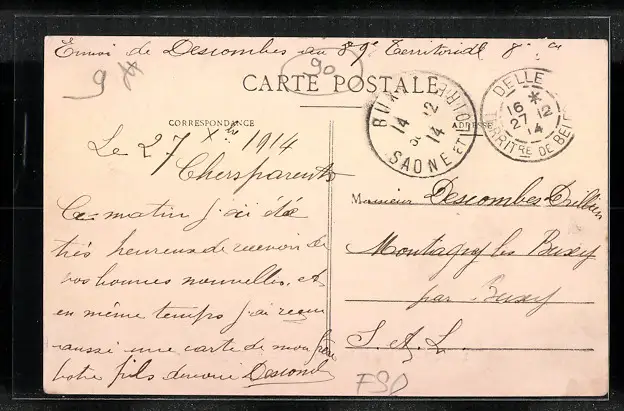 Envoi de Descombes au 59e Territorial 8e cie
9
90
CARTE POSTALE
CORRESPONDANCE
ADRESSE
BUXY
14 12
14
SAONE ET LOIRE
DELLE
16 *
27 12
14
TERRITRE DE BELF
Le 27 Xbre 1914
Chers parents
Ce matin j'ai été
très heureux de recevoir de
vos bonnes nouvelles, et
en même temps j'ai reçu
aussi une carte de mon frère
Votre fils dévoué Descombes
Monsieur Descombes
Montagny les Buxy
par Buxy
S. & L.
FSD